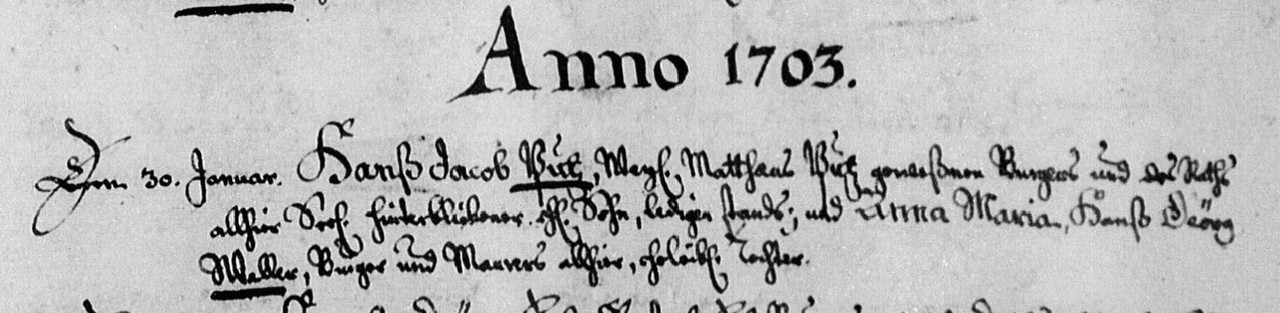 Anno 1703.
Den 30. Januar. Hanß Jacob Pütz, Weyl. Matthaus Pütz geweßenen Burgers und des Raths
allhier Seel. hinterblibener ehl. Sohn, ledigen stands; und Anna Maria, Hanß Geörg
Maurers allhier, eheleibl. Tochter.